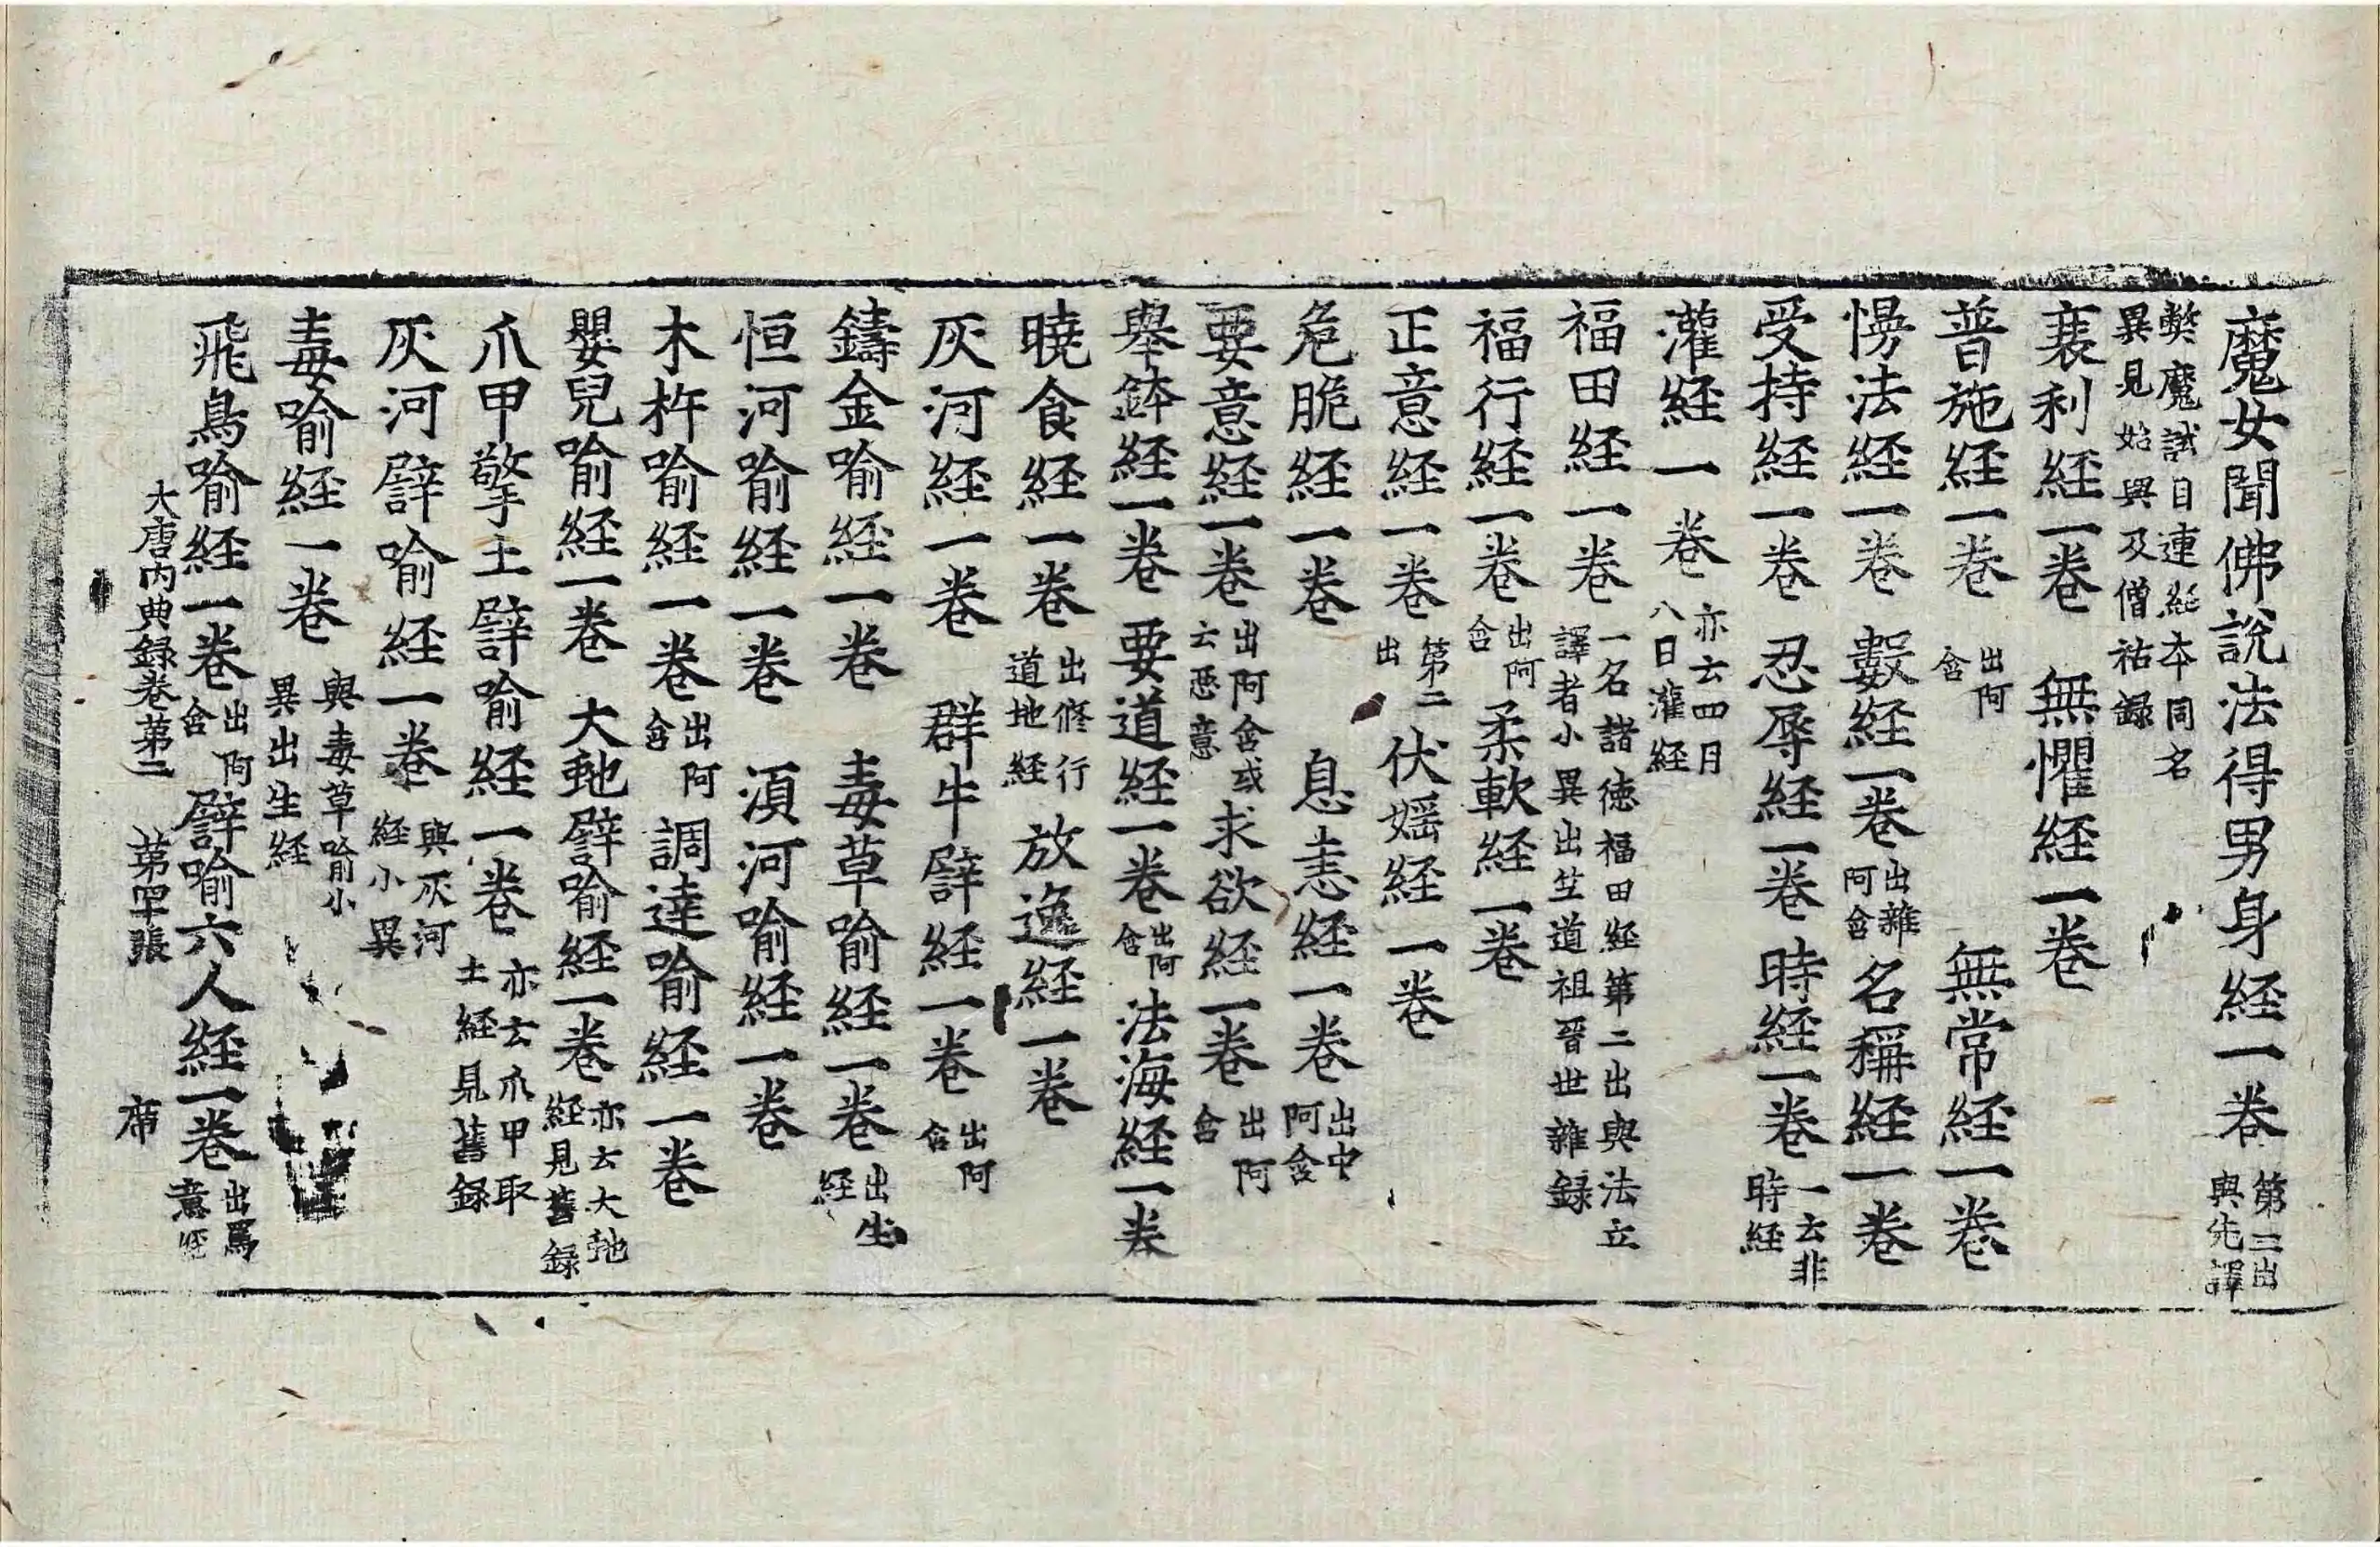 魔女聞佛說法得男身経一卷第二出與先譯
獘魔試目連経本同名異見始興及僧祐録
蓑利経一卷 無懼経一卷
普施経一卷出阿含 無常経一卷
㥬法経一卷 數経一卷出雜阿含 名稱経一卷
受持経一卷 忍辱経一卷 時経一卷一云非時経
灌経一卷亦云四月八日灌経
福田経一卷一名諸徳福田経第二出與法立譯者小異出竺道祖晉世雜録
福行経一卷出阿含 柔軟経一卷
正意経一卷第二出 伏婬経一卷
危脆経一卷 息恚経一卷出中阿含
要意経一卷出阿含或云惡意 求欲経一卷出阿含
舉鉢経一卷 要道経一卷出阿含 法海経一卷
曉食経一卷出修行道地経 放逸経一卷
灰河経一卷 群牛譬経一卷出阿含
鑄金喻経一卷 毒草喻経一卷出生経
恒河喻経一卷 湏河喻経一卷
木杵喻経一卷出阿含 調達喻経一卷
嬰兒喻経一卷 大虵譬喻経一卷亦云大虵経見舊録
爪甲擎土譬喻経一卷亦云爪甲取土経見舊録
灰河譬喻経一卷與灰河経小異
毒喻経一卷與毒草喻小異出生経
飛鳥喻経一卷出阿含 譬喻六人経一卷出罵意経
大唐内典録卷第二 第罕張 席